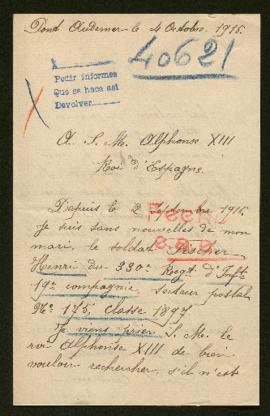 Pont Audemer le 4 Octobre 1915.
40621
A
Pedir informes
Que se haca asi
Devolver
A S. M. Alphonse XIII
Roi d'Espagne.
Depuis le 2 Septembre 1915
je suis sans nouvelles de mon
mari, le soldat Pescher
Henri du 330e Regt d'Inftie
19e compagnie secteur postal
No 175, classe 1897
Je viens prier S. M. le
roi Alphonse XIII de bien
vouloir rechercher, s'il n'est